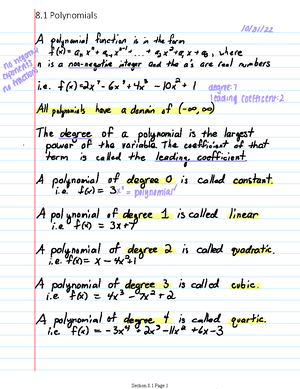 8.1 Polynomials
10/31/22
A polynomial function is in the form
f(x) = aₙxⁿ + aₙ₋₁xⁿ⁻¹ + ... + a₂x² + a₁x + a₀, where
n is a non-negative integer and the a's are real numbers
no negative
exponents
no fractions
i.e. f(x) = 2x⁷ - 6x⁵ + 4x³ - 10x² + 1
degree: 7
leading coefficient: 2
All polynomials have a domain of (-∞, ∞)
The degree of a polynomial is the largest
power of the variable. The coefficient of that
term is called the leading coefficient.
A polynomial of degree 0 is called constant.
i.e. f(x) = 3x⁰ = polynomial
A polynomial of degree 1 is called linear
i.e. f(x) = 3x + 7
A polynomial of degree 2 is called quadratic.
i.e. f(x) = x - 4x² - 1
A polynomial of degree 3 is called cubic.
i.e. f(x) = 4x³ - 7x² + 2
A polynomial of degree 4 is called quartic.
i.e. f(x) = -3x⁴ + 2x³ - 11x² + 6x - 3
Section 8.1 Page 1